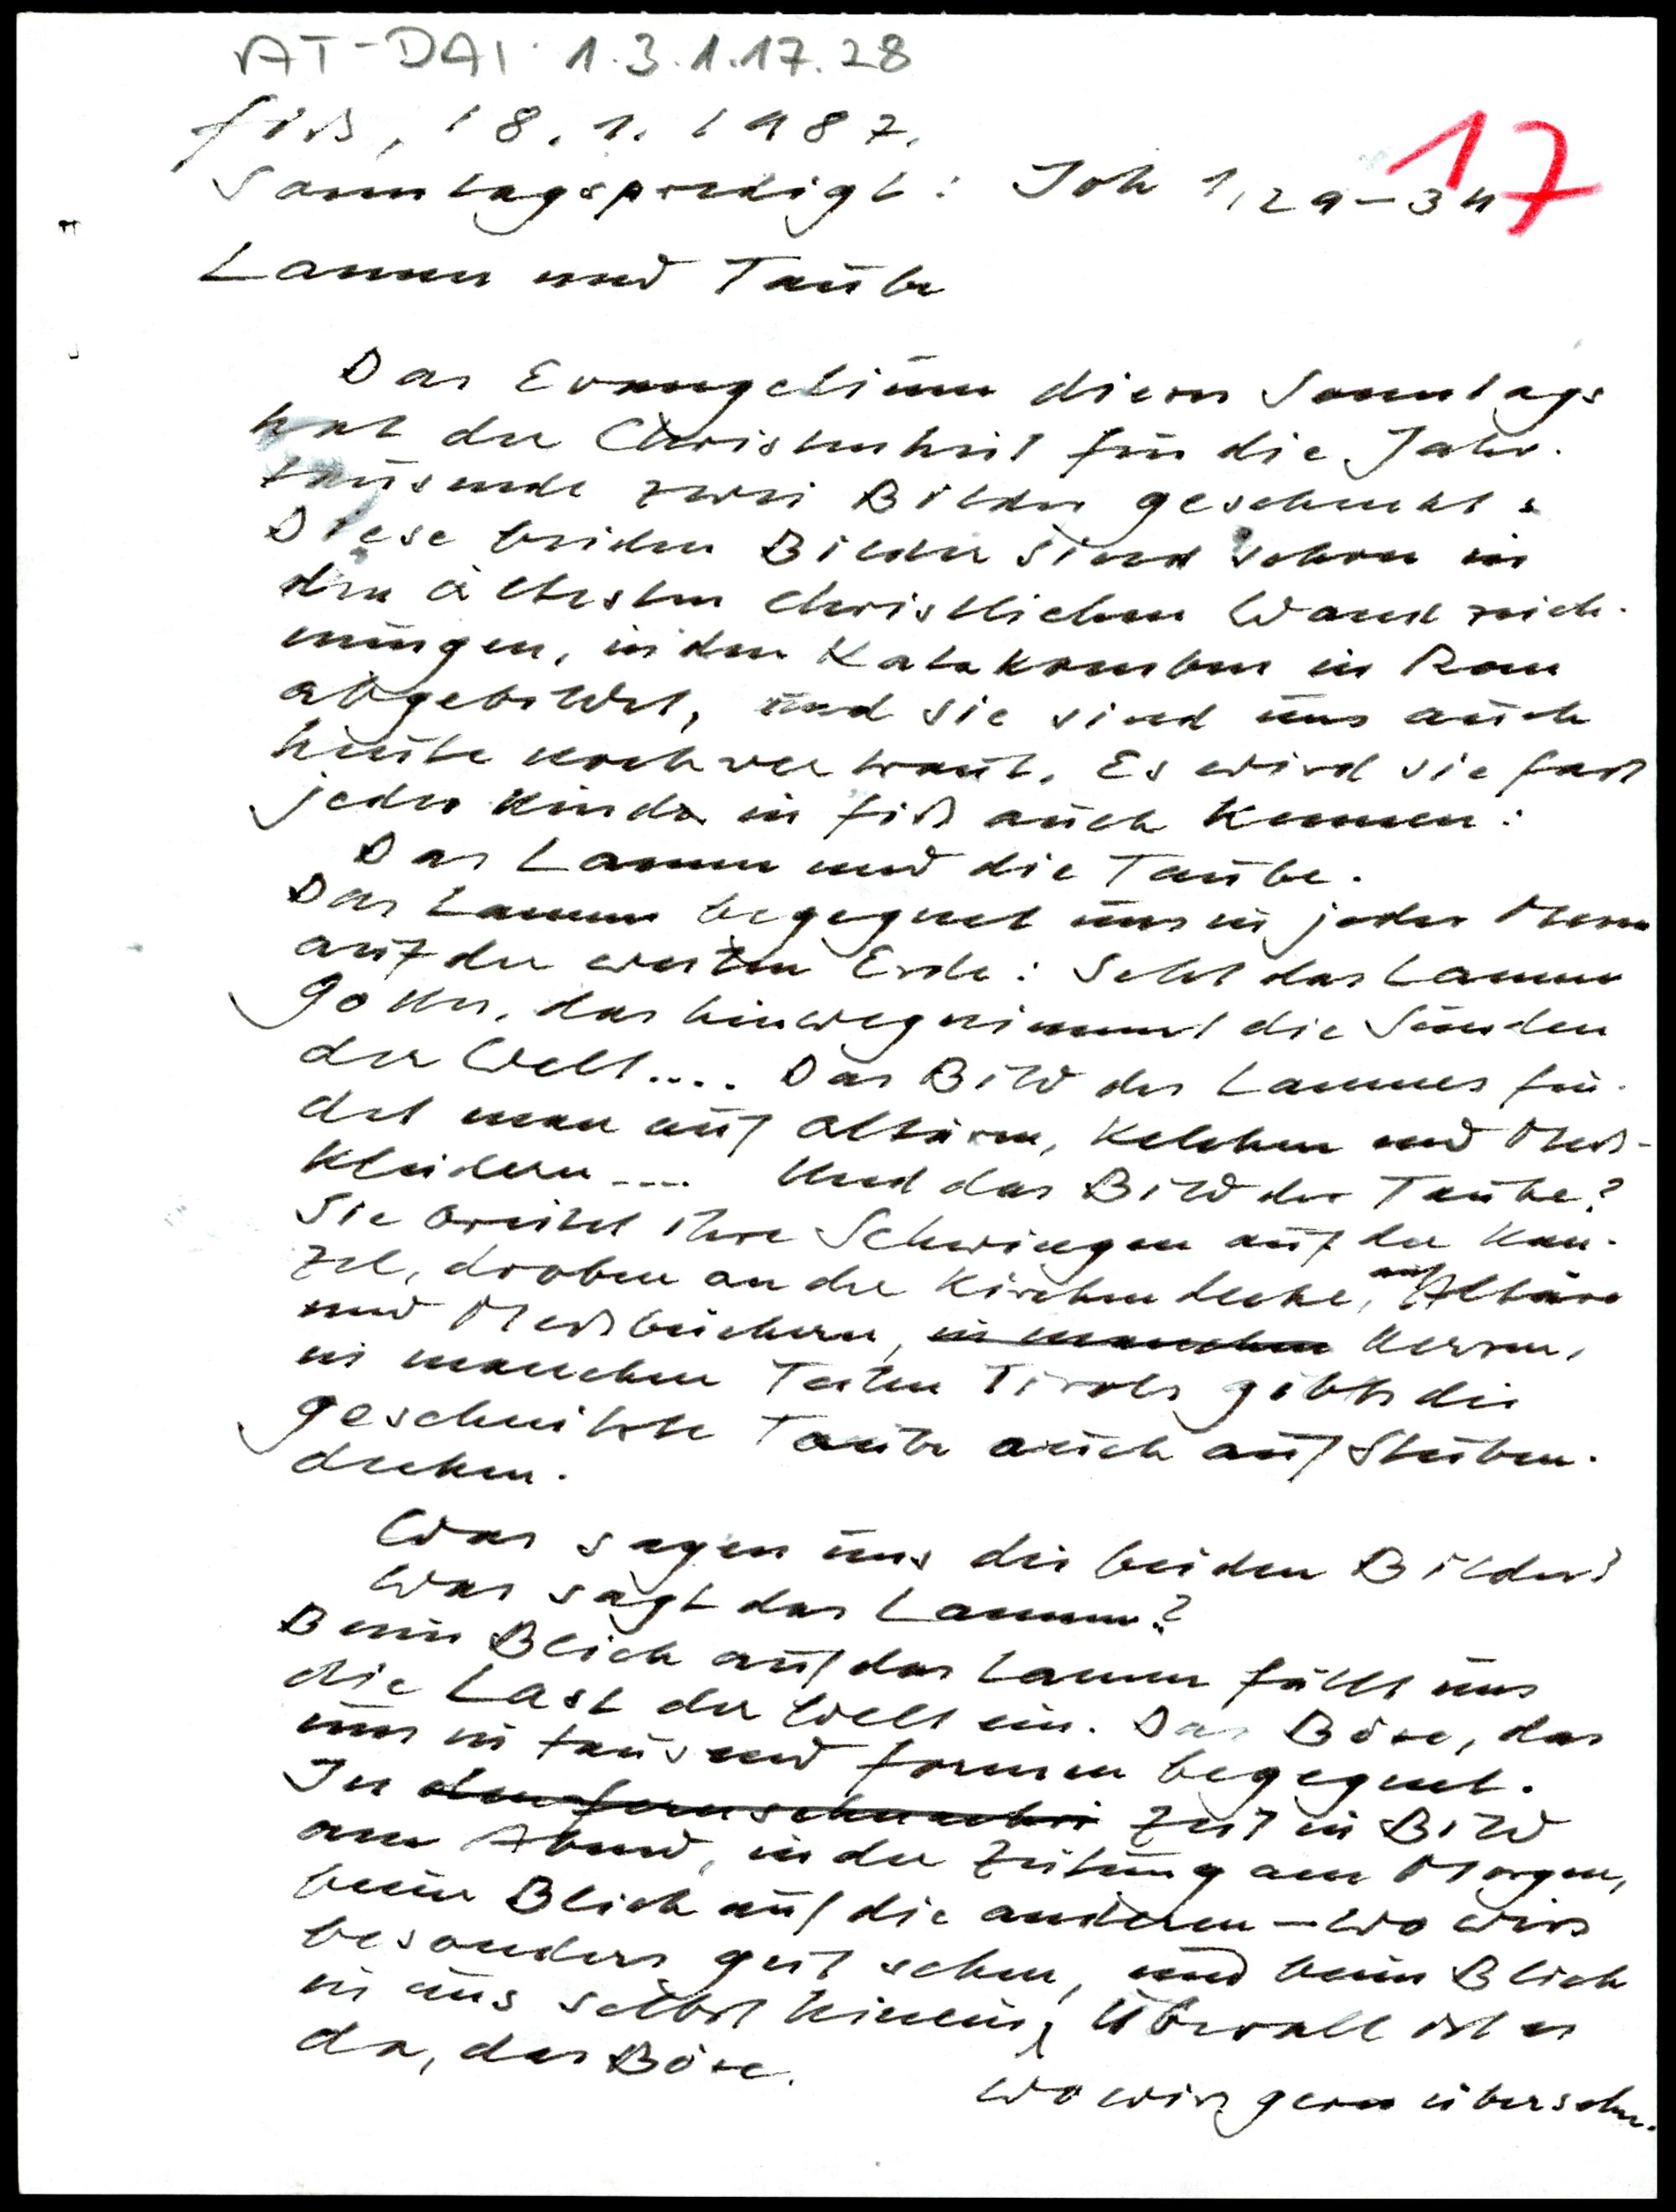 AT-DAI 1.3.1.17.28
fiß, 18.1.1987.
17
Sonntagspredigt: Joh 1,29-34
Lamm und Taube
Das Evangelium dieses Sonntags
hat der Christenheit für die Jahr-
tausende zwei Bilder geschenkt.
Diese beiden Bilder sind schon in
den ältesten christlichen Wandzeich-
nungen, in den Katakomben in Rom
abgebildet, und sie sind uns auch
heute noch vertraut. Es wird sie fast
jedes Kind in fiß auch kennen:
Das Lamm und die Taube.
Das Lamm begegnet uns in jeder Messe
auf der weiten Erde: Seht das Lamm
Gottes, das hinwegnimmt die Sünden
der Welt.... Das Bild des Lammes fin-
det man auf Altären, Kelchen und Meß-
kleidern.... Und das Bild der Taube?
Sie breitet ihre Schwingen auf der Kan-
zel, droben an der Kirchendecke, auf Altäre
und Meßbüchern, in manchen Kerzen,
in manchen Teilen Tirols gibts die
geschnitzte Taube auch auf Stuben-
decken.
Was sagen uns die beiden Bilder?
Was sagt das Lamm?
Beim Blick auf das Lamm fällt uns
die Last der Welt ein. Das Böse, das
uns in tausend formen begegnet.
In Zeit in Bild
am Abend, in der Zeitung am Morgen,
beim Blick auf die anderen - wo wirs
besonders gut sehen, und beim Blick
in uns selbst hinein, Überall ist es
da, das Böse.
wo wirs gern übersehn.